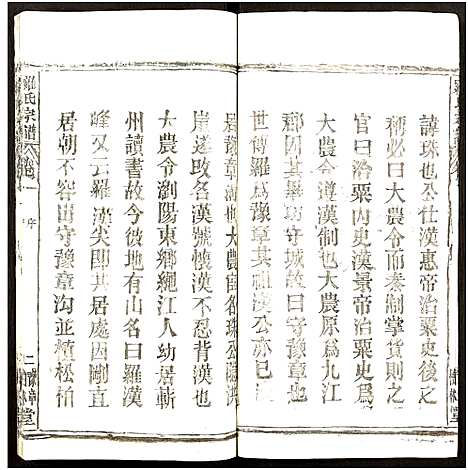 諱珠也公仕漢惠帝治粟史後之
稱必以大農令而秦制掌貨則之
官曰治粟內史漢景帝治粟史爲
大農令此漢制也大農原爲九江
郡因其守城故曰守豫章而
世傳羅爲豫章其祖漢公亦已
居豫章
崖遂改名漢號懷漢不忍背漢也
大農令瀏陽東鄉繩江人幼居蘄
州讀書故今彼地有山名曰羅漢
峰又云羅漢尖即其居處因剛直
居朝不容出守豫章溝並植松柏
羅氏宗譜
卷一
序
二
豫章
堂